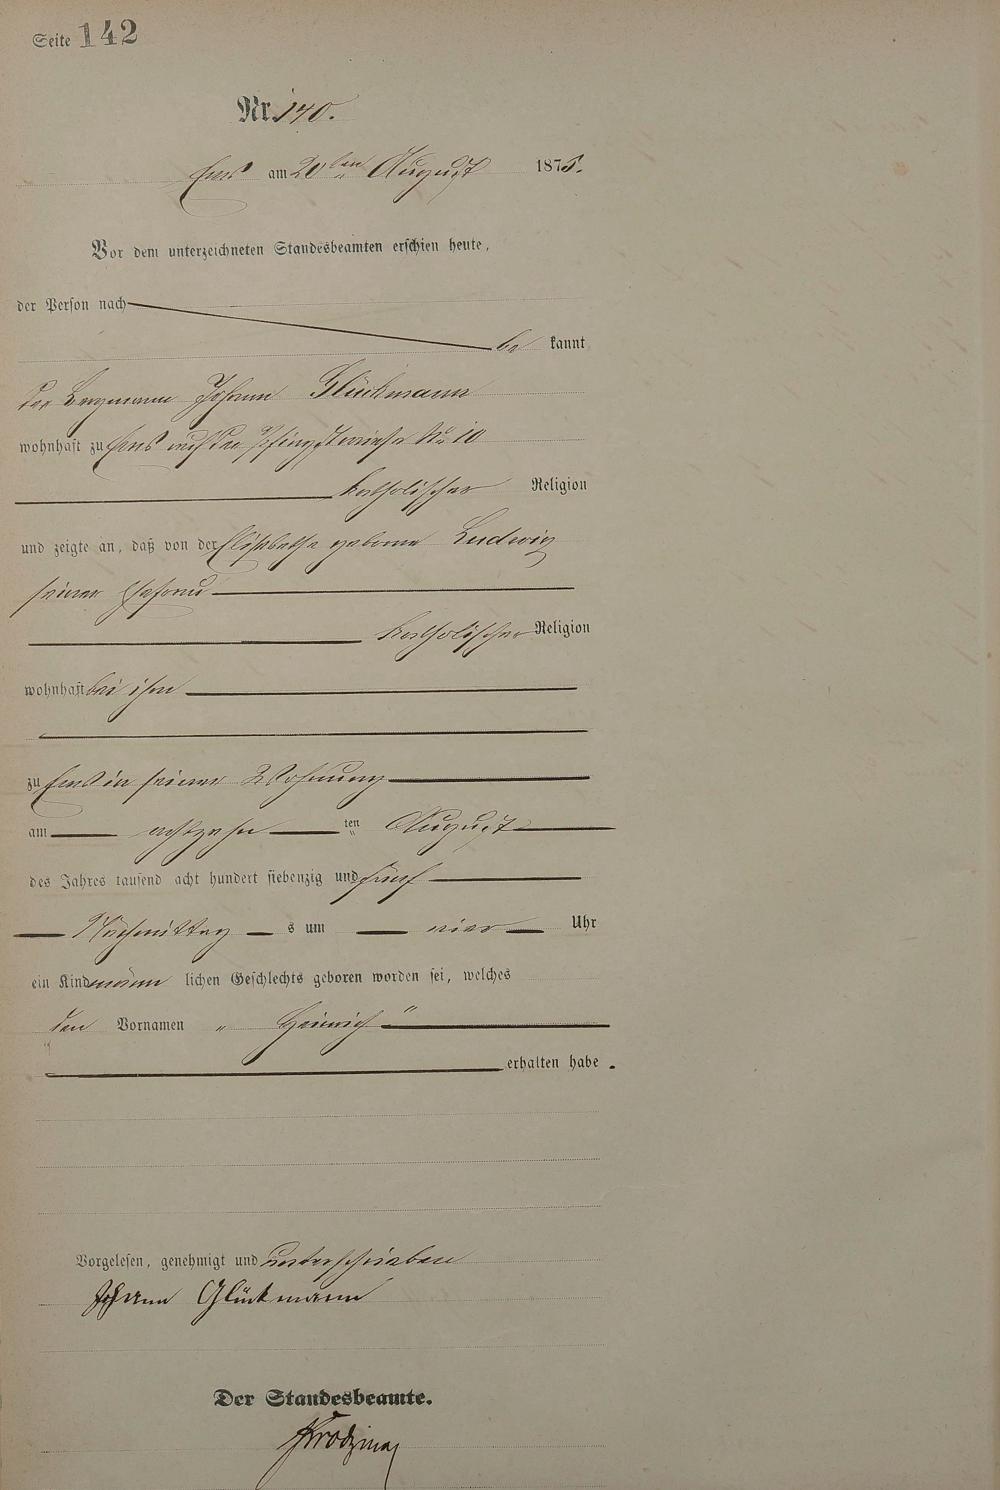 Seite 142
Nr. 140.
Ems am 20ten August 1875.
Vor dem unterzeichneten Standesbeamten erschien heute,
der Person nach
be kannt
der Bergmann Johann Glückmann
wohnhaft zu Ems auf der Pfingstwiese No 10
katholischer Religion
und zeigte an, daß von der Elisabetha geborne Ludwig
seiner Ehefrau
katholischer Religion
wohnhaft bei ihm
zu Ems in seiner Wohnung
am achtzehn ten August
des Jahres tausend acht hundert siebenzig und fünf
Nachmittag s um vier Uhr
ein Kind männ lichen Geschlechts geboren worden sei, welches
den Vornamen " Heinrich "
erhalten habe .
Vorgelesen, genehmigt und unterschrieben
Johann Glückmann
Der Standesbeamte.